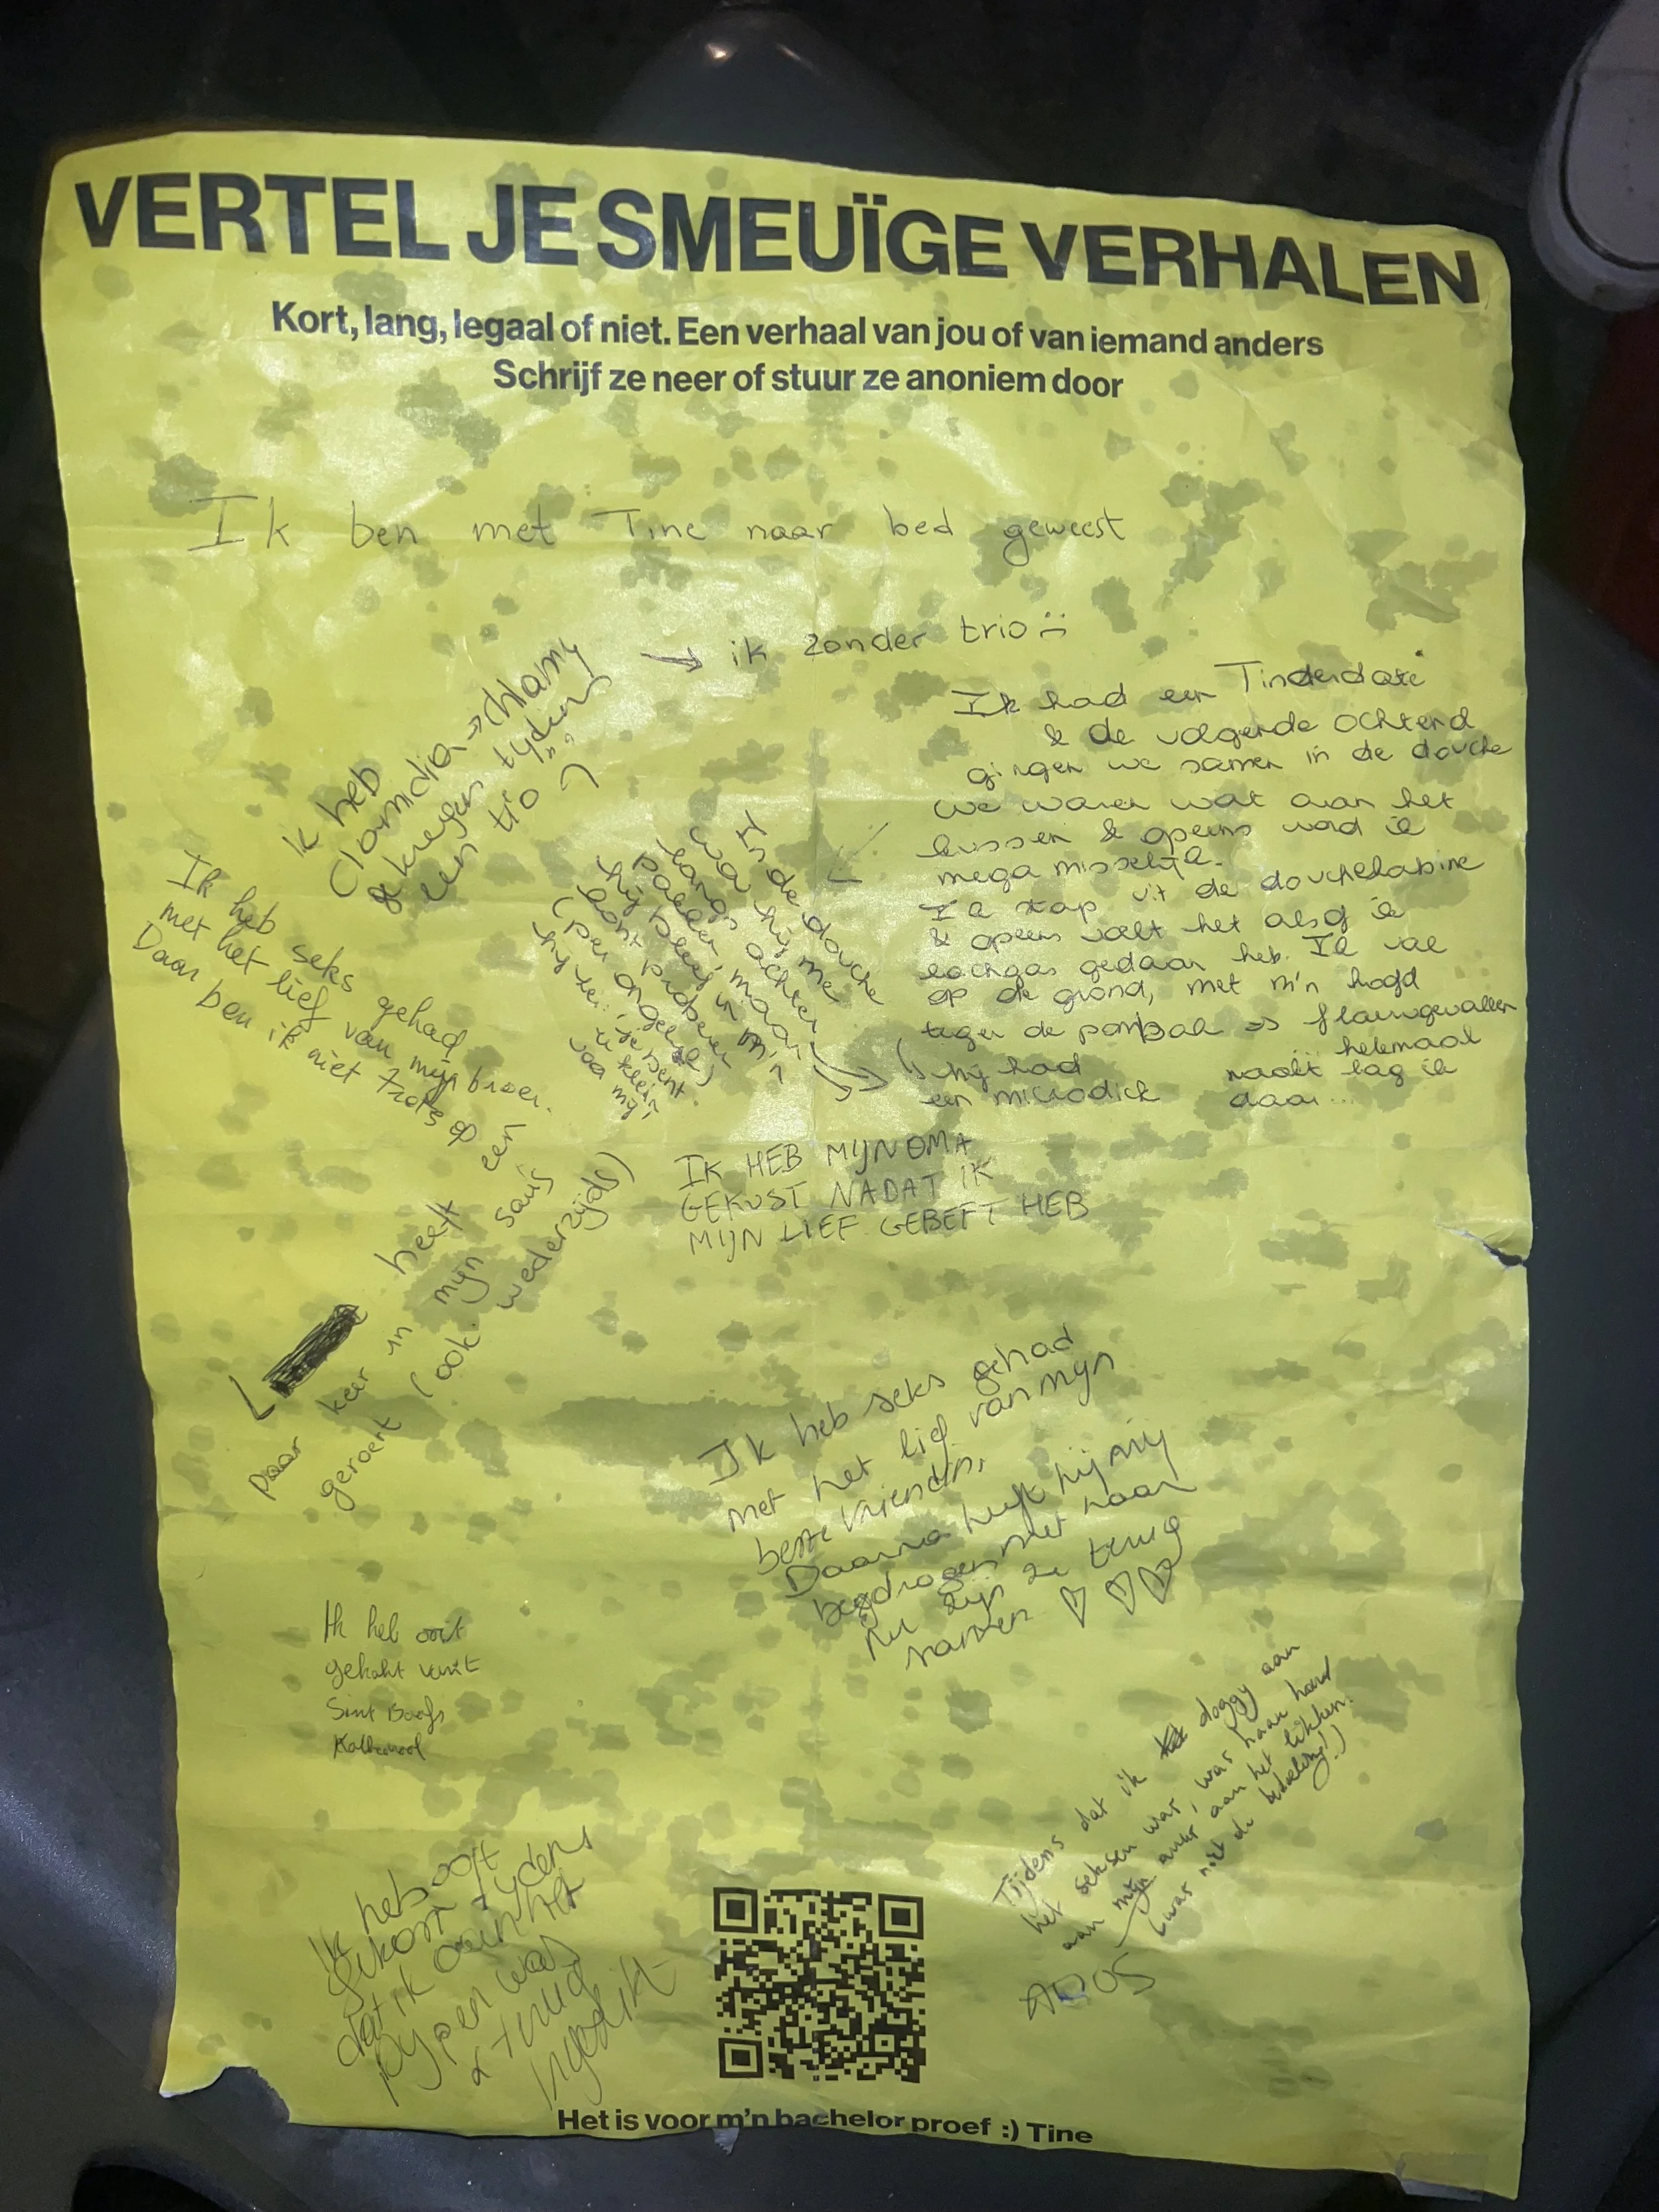 VERTEL JE SMEUÏGE VERHALEN
Kort, lang, legaal of niet. Een verhaal van jou of van iemand anders
Schrijf ze neer of stuur ze anoniem door
Ik ben met Tine naar bed geweest
→ ik zonder trio :(
ik heb
Clamidia → chlamy
gekregen tijdens
een trio :)
Ik had een Tinderdate
& de volgende ochtend
gingen we samen in de douche
we waren wat aan het
kussen & opeens word ik
mega misselijk.
Ik stap uit de douchekabine
& opeens voelt het alsof ik
lachgas gedaan heb. Ik val
op de grond, met m'n hoofd
tegen de pombak => flauwgevallen
helemaal
naakt lag ik
daar...
In de douche
wou hij me
langs achter
pakken, maar
hij kont proberen
(per ongeluk)
hij zei: je bent
te klein
voor mij
↳ hij had
een microdick
Ik heb seks gehad
met het lief van mijn broer.
Daar ben ik niet trots op
IK HEB MIJN OMA
GEKUST NADAT IK
MIJN LIEF GEBEFT HEB
heeft een
paar keer in mijn saus
geroert (ook wederzijds)
Ik heb seks gehad
met het lief van mijn
beste vriendin.
Daarna heeft hij mij
bedrogen met haar
Nu zijn ze terug
samen ♡ ♡ ♡
Ik heb ooit
gekakt
Sint Baafs
Ik heb ooit
gekotst tijdens
dat ik aan het
pijpen was
& terug
ingeslikt
Tijdens dat ik doggy aan
het seksen was, was haar hond
aan mijn anus aan het likken.
(was niet de bedoeling!)
Het is voor m'n bachelor proef :) Tine